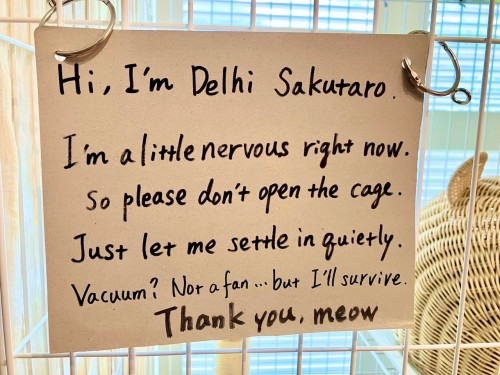 Hi, I'm Delhi Sakutaro.
I'm a little nervous right now.
So please don't open the cage.
Just let me settle in quietly.
Vacuum? Not a fan... but I'll survive.
Thank you, meow